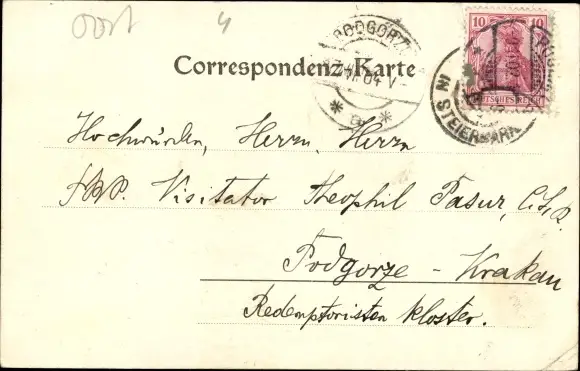 4
PODGORZE
Correspondenz-Karte
04
10 10
DEUTSCHES REICH
IN STEIERMARK
Hochwürden, Herrn, Herrn
P. Visitator Theophil Pasur, C.Ss.R.
Podgorze - Krakau
Redemptoristen kloster.